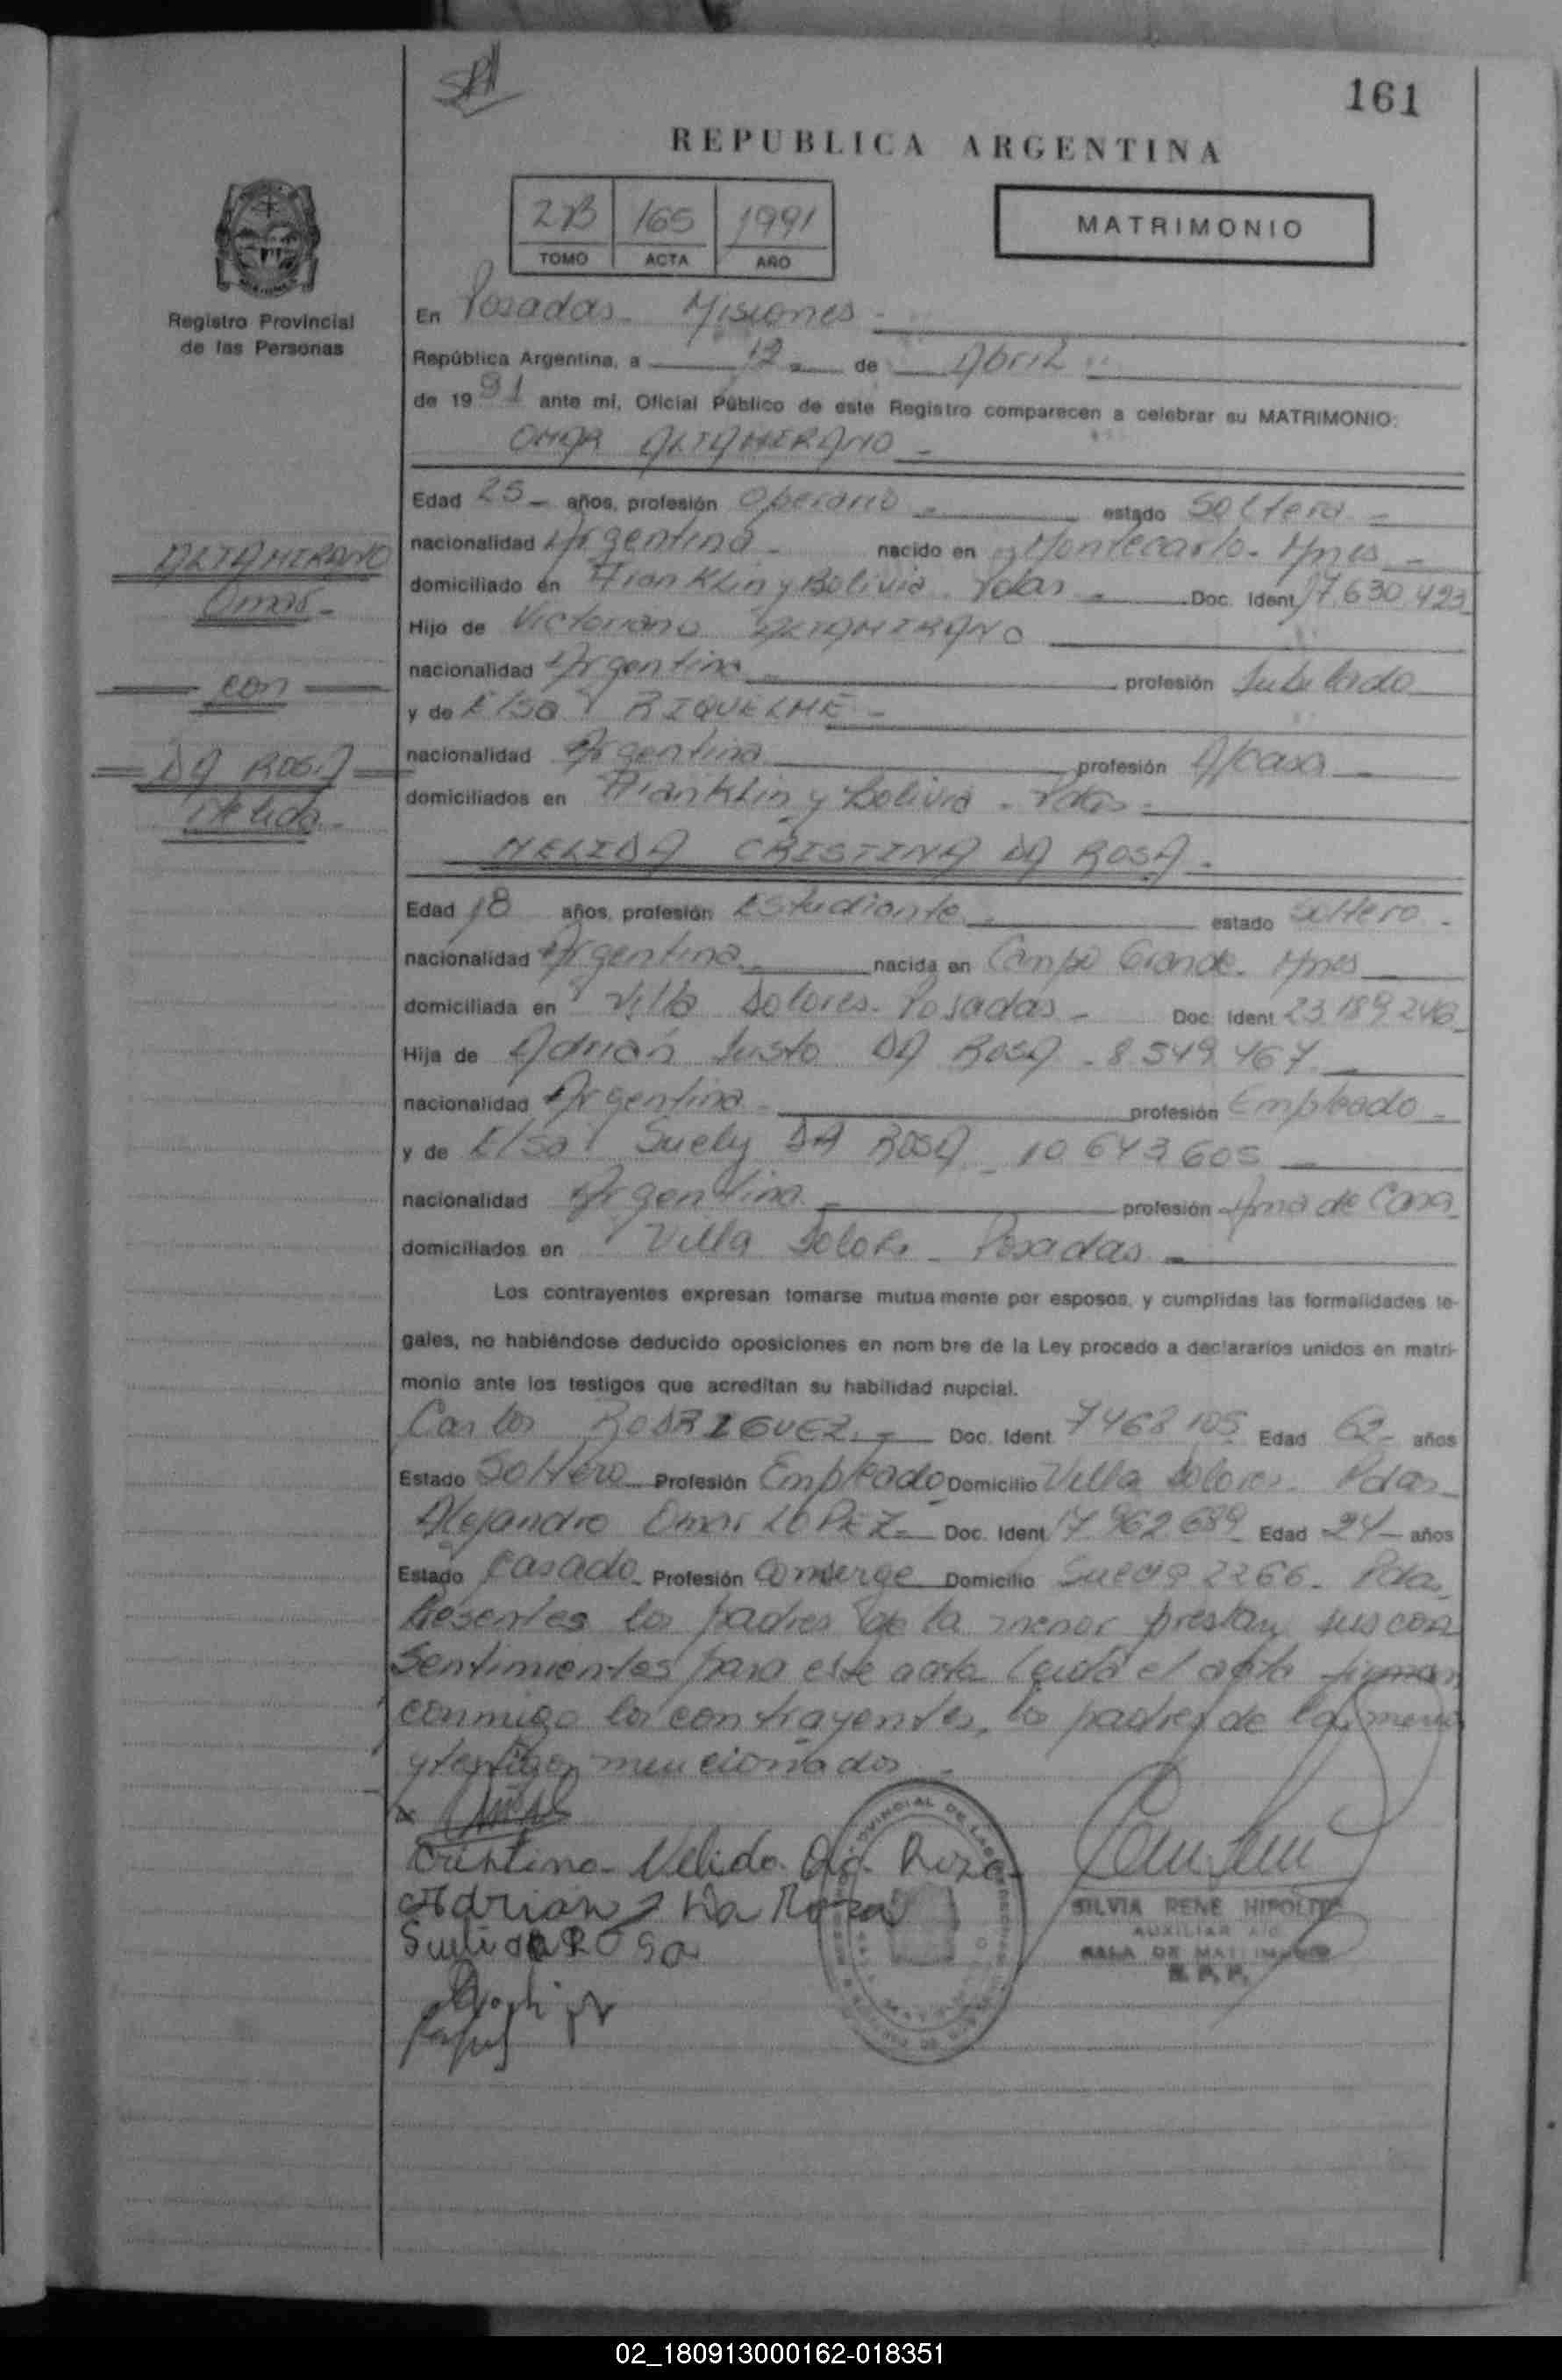 161
REPUBLICA ARGENTINA
2B 165 1991
TOMO ACTA AÑO
MATRIMONIO
Registro Provincial
de las Personas
En Posadas - Misiones -
República Argentina, a 12 de Abril
de 1991 ante mí, Oficial Público de este Registro comparecen a celebrar su MATRIMONIO:
OMAR ALTAMIRANO -
Edad 25 - años, profesión Operario - estado Soltero -
nacionalidad Argentina - nacido en Montecarlo - Mnes -
domiciliado en Franklin y Bolivia Pdas - Doc. Ident 17.630.423
Hijo de Victoriano ALTAMIRANO
nacionalidad Argentina profesión Jubilado
y de Elsa RIQUELME -
nacionalidad Argentina profesión A/casa -
domiciliados en Franklin y Bolivia - Pdas -
NELIDA CRISTINA DA ROSA -
ALTAMIRANO
Omar -
con
DA ROSA
Nelida -
Edad 18 años, profesión Estudiante - estado Soltera -
nacionalidad Argentina - nacida en Campo Grande - Mnes
domiciliada en Villa Dolores - Posadas - Doc. Ident 23.189.246
Hija de Adrián Justo DA ROSA - 8.549.467 -
nacionalidad Argentina - profesión Empleado -
y de Elsa Suely DA ROSA - 10.643.605 -
nacionalidad Argentina - profesión Ama de Casa
domiciliados en Villa Dolores - Posadas -
Los contrayentes expresan tomarse mutua mente por esposos, y cumplidas las formalidades le-
gales, no habiéndose deducido oposiciones en nom bre de la Ley procedo a declararlos unidos en matri-
monio ante los testigos que acreditan su habilidad nupcial.
Carlos RODRIGUEZ - Doc. Ident. 7468105 Edad 62 - años
Estado Soltero Profesión Empleado Domicilio Villa Dolores - Pdas -
Alejandro Omar LOPEZ - Doc. Ident 17.962.689 Edad 24 - años
Estado Casado - Profesión Domicilio Suecia 2266 - Pdas
Presentes los padres de la menor prestan sus con
sentimientos para este acto Leida el acta firman
conmigo los contrayentes, los padres de la menor
y testigos mencionados -
Cristina Nelida Da Roza
Adrian J Da Roza
Sueli da ROSA
SILVIA RENE HIPOLITO
AUXILIAR
SALA DE MATRIMONIO
R. P. P.
02_180913000162-018351